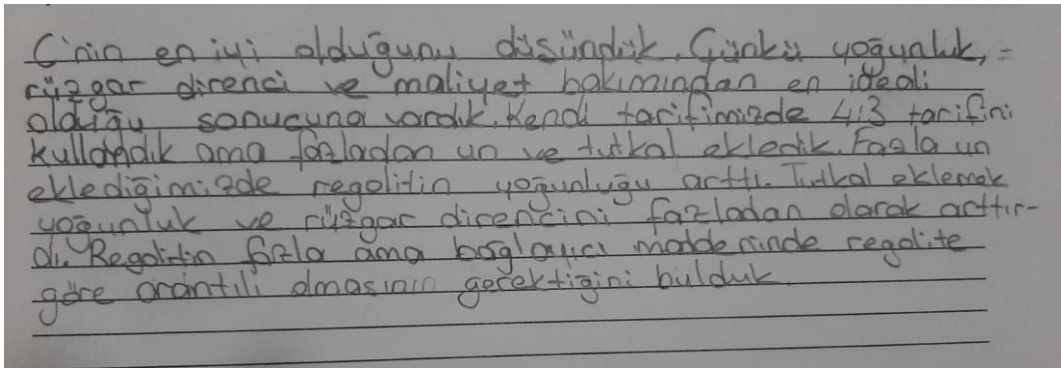 C'nin en iyi olduğunu düsündük. Çünkü yoğunluk,
rüzgar direnci ve maliyet bakımından en ideali
olduğu sonucuna vardık. Kendi tarifimizde 4:3 tarifini
kullandık ama fazladan un ve tutkal ekledik. Fazla un
eklediğimizde regolitin yoğunluğu arttı. Tutkal eklemek
yoğunluk ve rüzgar direncini fazladan olarak arttır-
dı. Regolitin fazla ama bağlayıcı maddeninde regolite
göre orantılı olmasının gerektiğini bulduk.